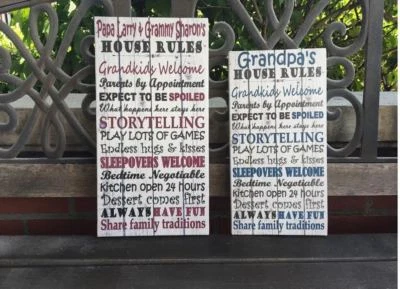 Papa Larry & Grammy Sharon's
HOUSE RULES
Grandkids Welcome
Parents by Appointment
EXPECT TO BE SPOILED
What happens here stays here
STORYTELLING
PLAY LOTS OF GAMES
Endless hugs & kisses
SLEEPOVERS WELCOME
Bedtime Negotiable
Kitchen open 24 hours
Dessert comes first
ALWAYS HAVE FUN
Share family traditions
Grandpa's
HOUSE RULES
Grandkids Welcome
Parents by Appointment
EXPECT TO BE SPOILED
What happens here stays here
STORYTELLING
PLAY LOTS OF GAMES
Endless hugs & kisses
SLEEPOVERS WELCOME
Bedtime Negotiable
Kitchen open 24 hours
Dessert comes first
ALWAYS HAVE FUN
Share family traditions